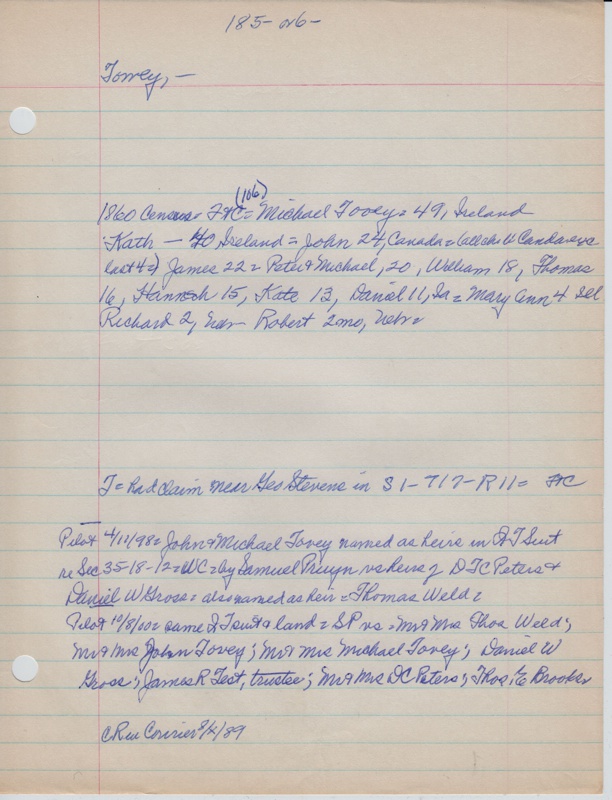 185- or 6-
Tovey, —
(106)
1860 Census FtC = Michael Tovey = 49, Ireland
Kath — 40 Ireland = John 24, Canada = (all chr Canada exc
last 4=) James 22 = Peter & Michael, 20, William 18, Thomas
16, Hannah 15, Kate 13, Daniel 11, Ia = Mary Ann 4 Ill
Richard 2, Nebr Robert 2 mo, Nebr =
T = had claim near Geo Stevens in S 1 - T17 - R 11 = FtC
Pilot 4/11/98 = John & Michael Tovey named as heirs in QT Suit
re Sec 35-18-12 = WC = by Samuel Pruyn vs heirs of D T C Peters &
Daniel W Gross = also named as heir = Thomas Weld =
Pilot 10/8/00 = same QT suit & land = SP vs = Mr & Mrs Thos Weed;
Mr & Mrs John Tovey; Mr & Mrs Michael Tovey; Daniel W
Gross; James R Test, trustee; Mr & Mrs DC Peters; Thos. E Brooks
Courier 89